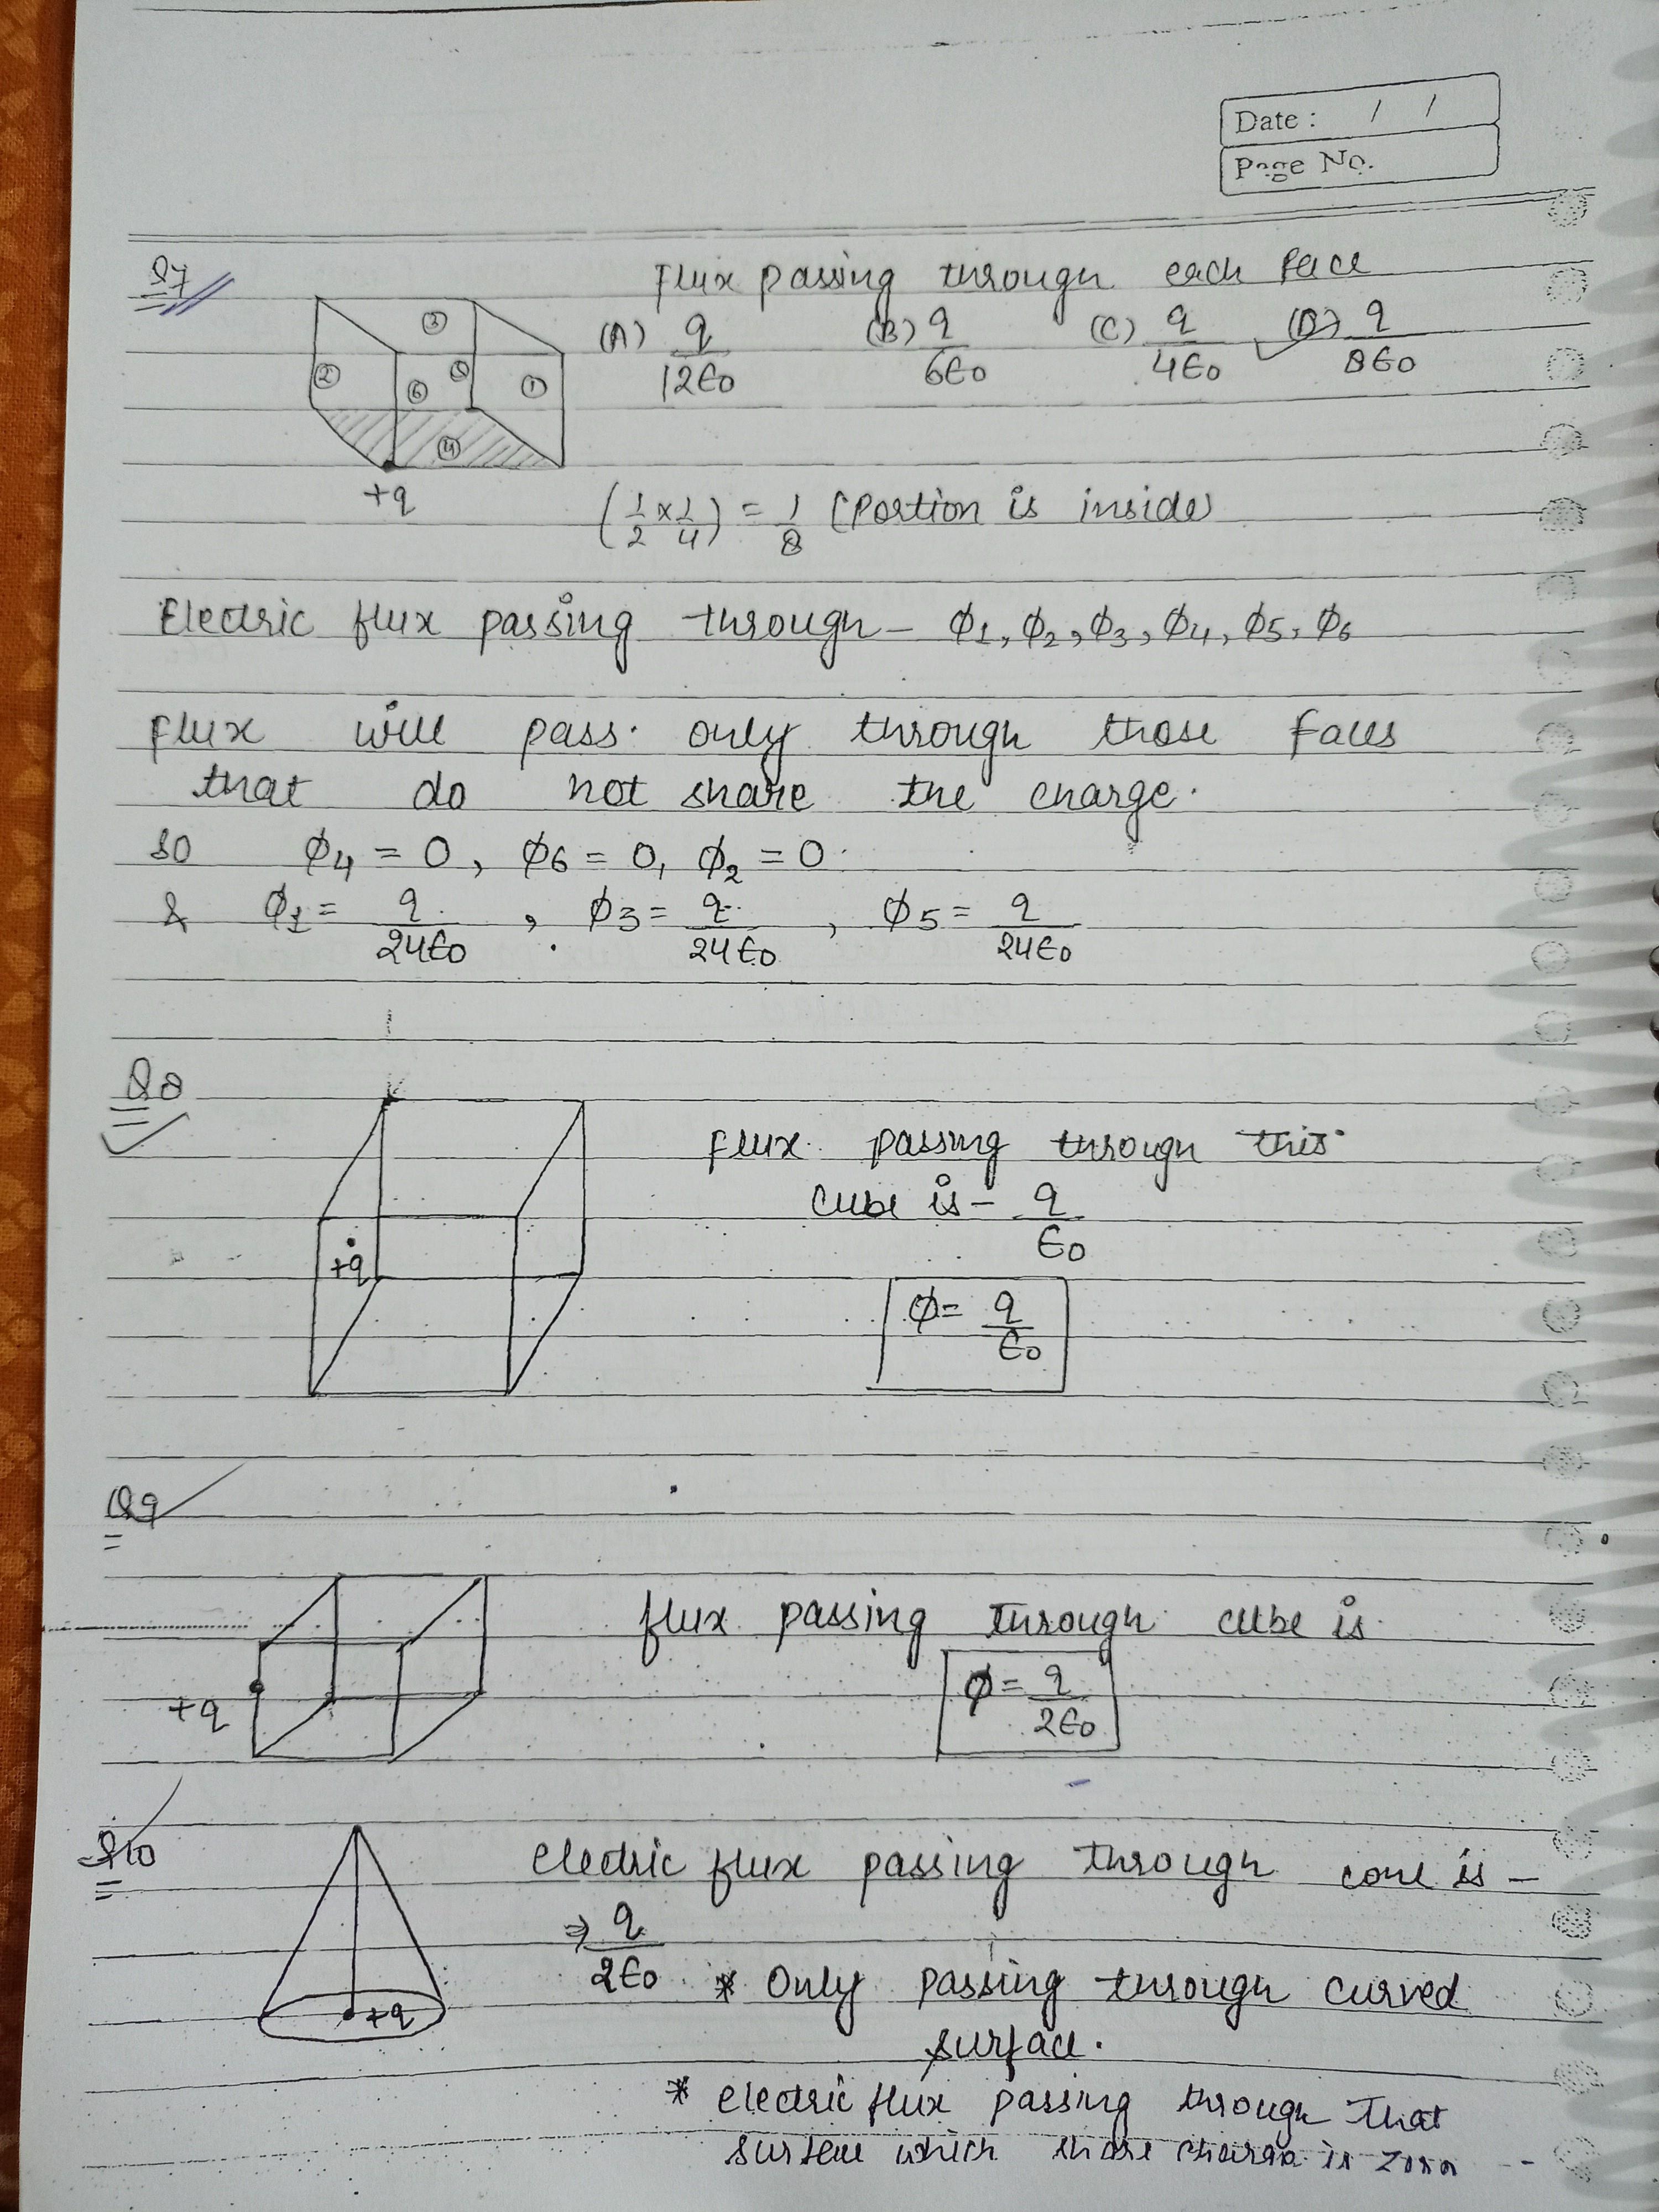 Date : / /
Page No.
Q7
Flux passing through each face
(A) q/12ϵ0 (B) q/6ϵ0 (C) q/4ϵ0 ✓(D) q/8ϵ0
③
② ⑥ ⑤ ①
④
+q
(1/2 × 1/4) = 1/8 (Portion is inside)
Electric flux passing through – ϕ1, ϕ2, ϕ3, ϕ4, ϕ5, ϕ6
flux will pass only through those faces
that do not share the charge.
so ϕ4 = 0, ϕ6 = 0, ϕ2 = 0
& ϕ1 = q/24ϵ0 , ϕ3 = q/24ϵ0 , ϕ5 = q/24ϵ0
Q8
flux passing through this
cube is – q/ϵ0
+q
ϕ = q/ϵ0
Q9
flux passing through cube is
+q
ϕ = q/2ϵ0
Q10
electric flux passing through cone is –
⇒ q/2ϵ0 * Only passing through curved
+q
surface.
* electric flux passing through that
surface which share charge is zero